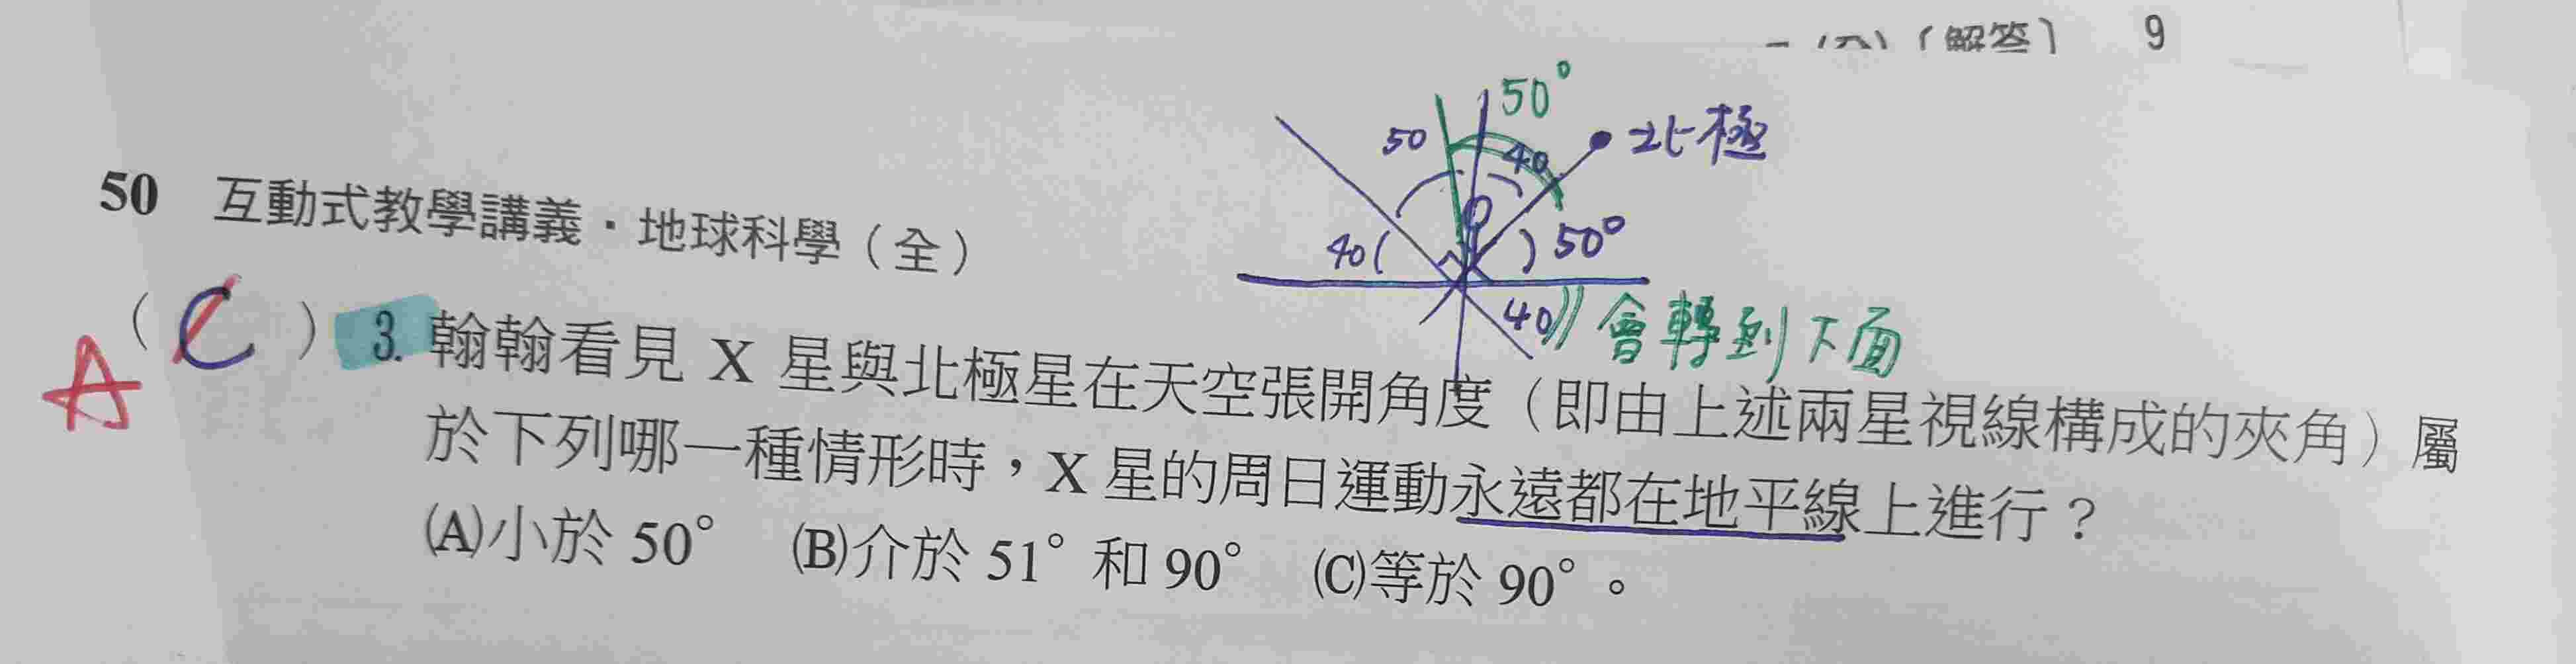 〔解答〕 9
50°
50 40 北極
50 互動式教學講義·地球科學（全）
40 50°
40 會轉到下面
A（C）3. 翰翰看見 X 星與北極星在天空張開角度（即由上述兩星視線構成的夾角）屬
於下列哪一種情形時，X 星的周日運動永遠都在地平線上進行？
(A)小於 50° (B)介於 51° 和 90° (C)等於 90°。